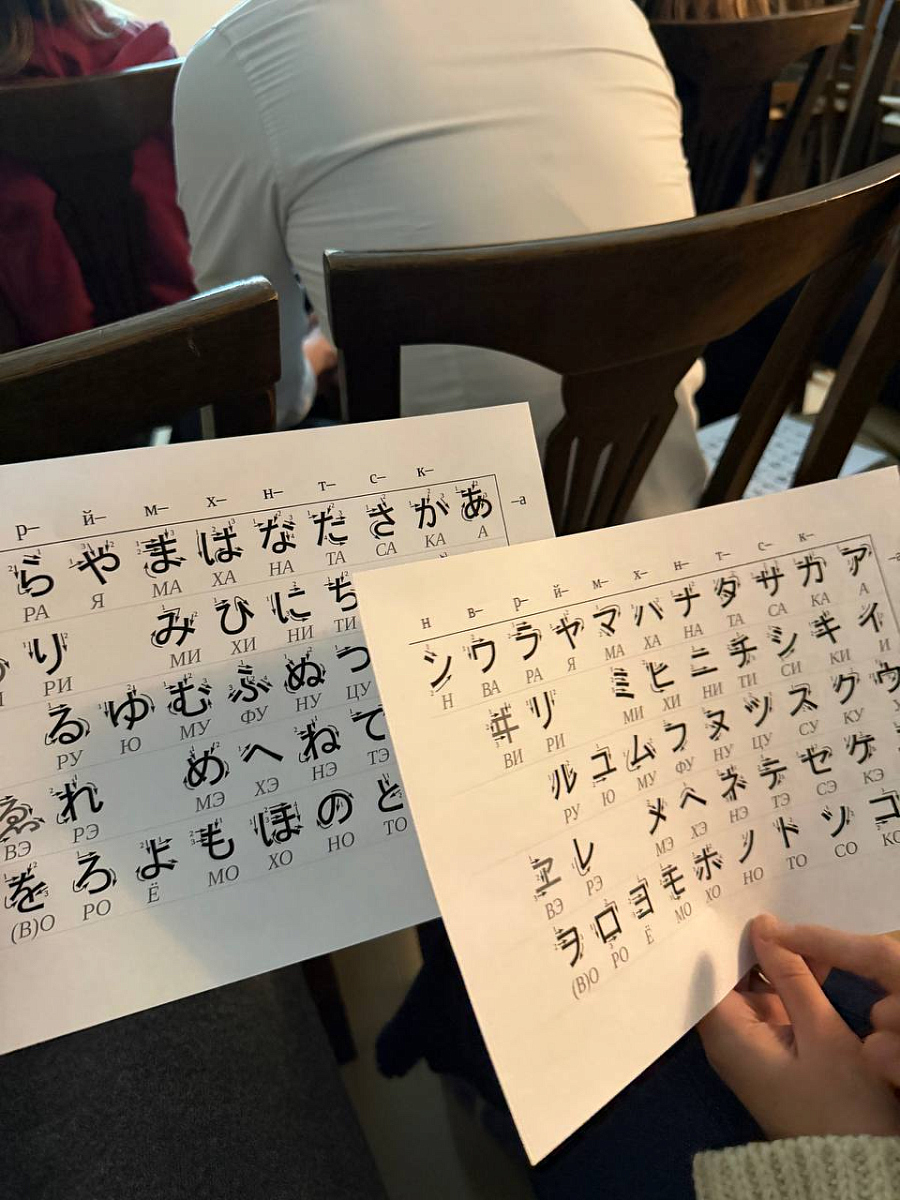 р– й– м– х– н– т– с– к–
ら や ま は な た さ か あ –а
РА Я МА ХА НА ТА СА КА А
り み ひ に ち
РИ МИ ХИ НИ ТИ
る ゆ む ふ ぬ つ
РУ Ю МУ ФУ НУ ЦУ
ゑ れ め へ ね て
ВЭ РЭ МЭ ХЭ НЭ ТЭ
を ろ よ も ほ の と
(В)О РО Ё МО ХО НО ТО
н в– р– й– м– х– н– т– с– к–
ン ワ ラ ヤ マ ハ ナ タ サ カ ア
Н ВА РА Я МА ХА НА ТА СА КА А
ヰ リ ミ ヒ ニ チ シ キ イ
ВИ РИ МИ ХИ НИ ТИ СИ КИ И
ル ユ ム フ ヌ ツ ス ク ウ
РУ Ю МУ ФУ НУ ЦУ СУ КУ
ヱ レ メ ヘ ネ テ セ ケ
ВЭ РЭ МЭ ХЭ НЭ ТЭ СЭ КЭ
ヲ ロ ヨ モ ホ ノ ト ソ コ
(В)О РО Ё МО ХО НО ТО СО